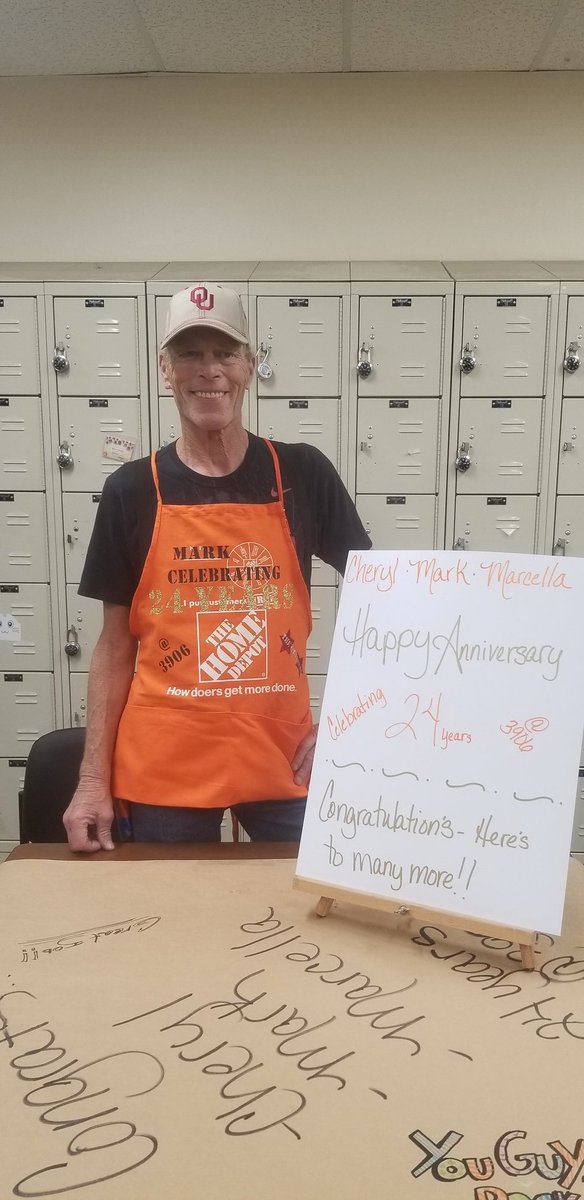 OU
MARK
CELEBRATING
24 YEARS
I put customers FIRST
@
3906
THE
HOME
DEPOT
How doers get more done.
Cheryl · Mark · Marcella
Happy Anniversary
Celebrating 24 years @ 3906
Congratulation's - Here's
to many more!!
Great Job!!!
Congrats
- Cheryl
- Mark
- Marcella
24 years
@
You Guy